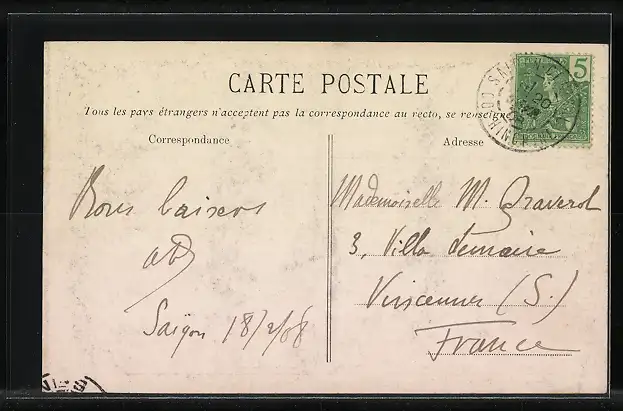 CARTE POSTALE
Tous les pays étrangers n'acceptent pas la correspondance au recto, se renseigne
Correspondance
Adresse
5
Bons baisers
Saïgon 18/2/08
Mademoiselle M. Graverol
3, Villa Lemaire
Vincennes (S.)
France